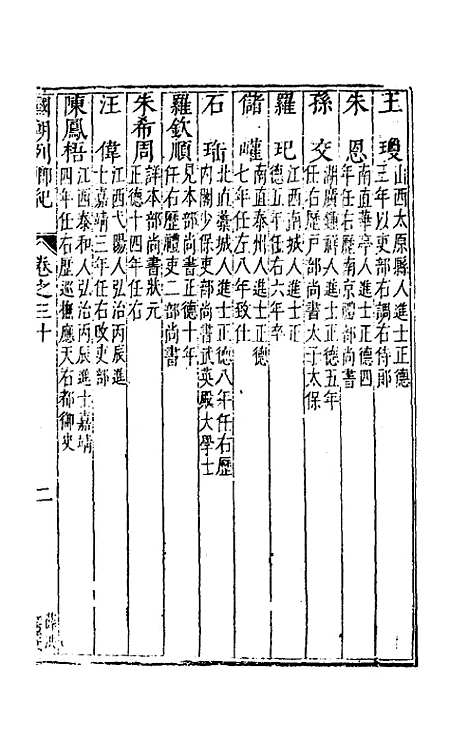 王瓊
山西太原縣人進士正德
三年以吏部右調右侍郎
朱恩
南直華亭人進士正德四
年任右歷南京禮部尚書
孫交
湖廣鍾祥人進士正德五年
任右歷戶部尚書太子太保
羅玘
江西南城人進士正
德五年任右六年卒
儲巏
南直泰州人進士正德
七年任左八年致仕
石珤
北直藁城人進士正德八年任右歷
內閣少保吏部尚書武英殿大學士
羅欽順
見本部尚書正德十年
任右歷禮吏二部尚書
朱希周
詳本部尚書狀元
正德十四年任右
汪偉
江西弋陽人弘治丙辰進
士嘉靖三年任右改吏部
陳鳳梧
江西泰和人弘治丙辰進士嘉靖
四年任右歷巡撫應天右都御史
國朝列卿紀 卷之三十 二